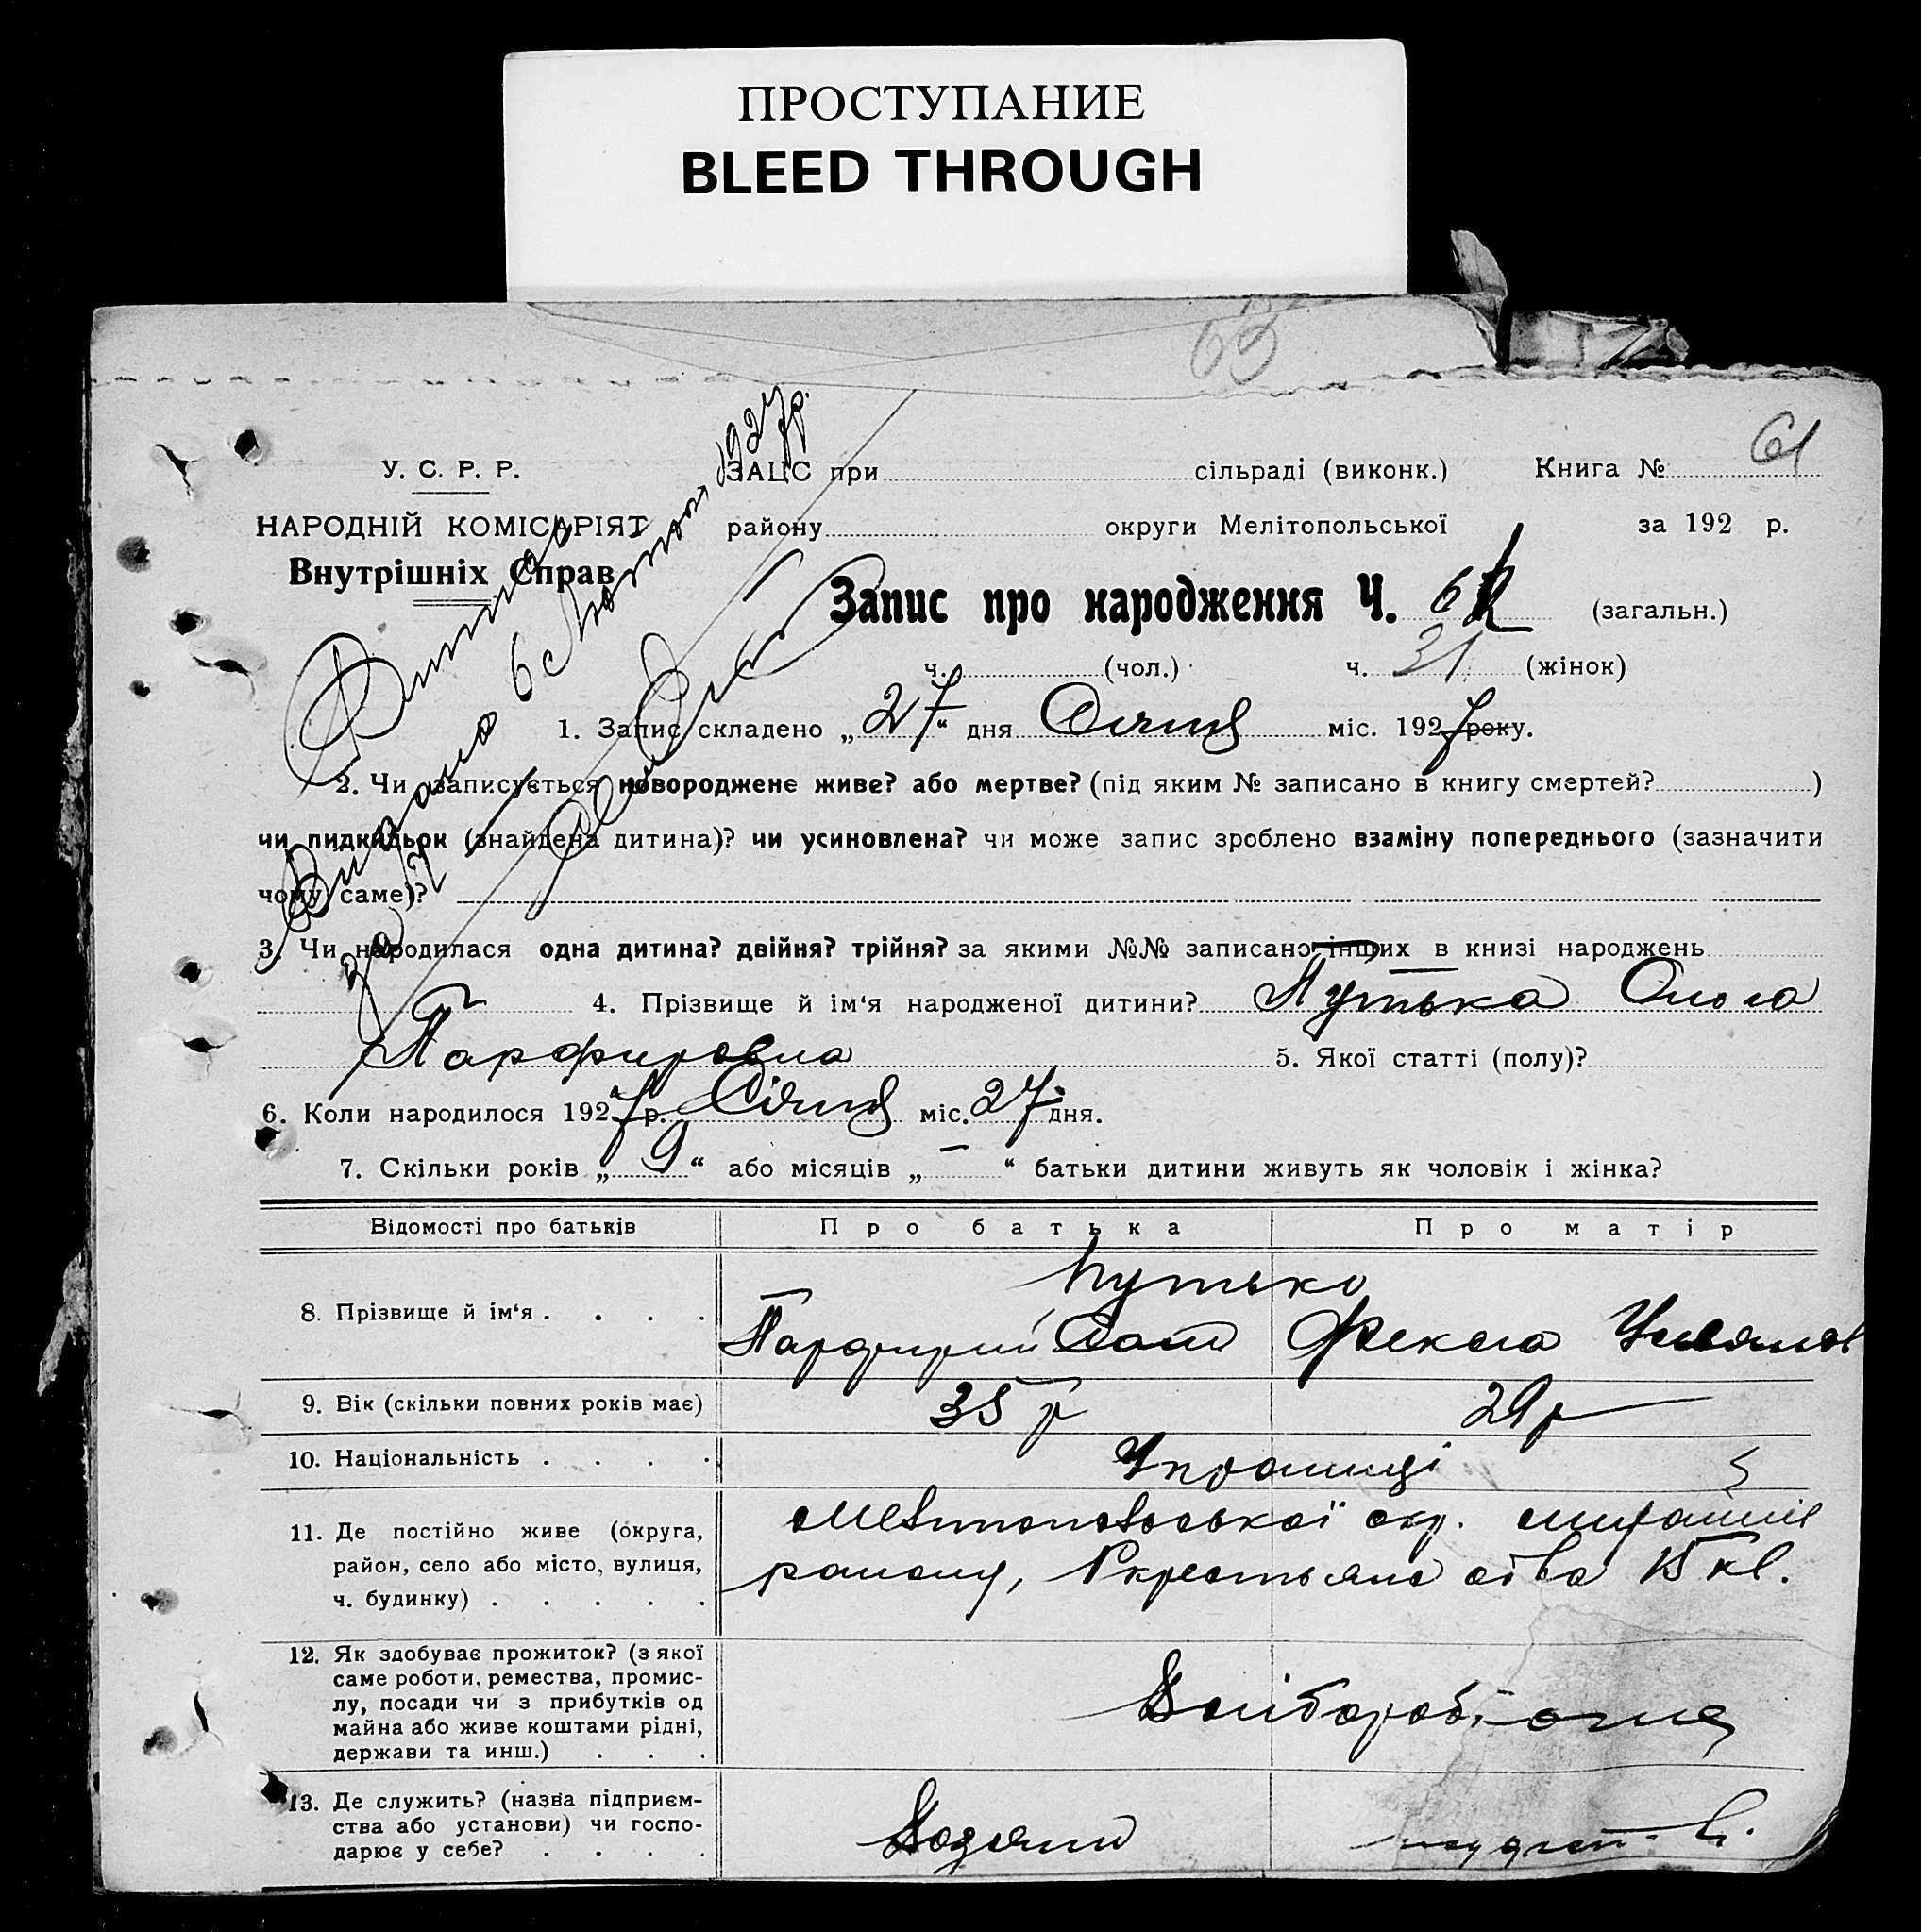 ПРОСТУПАНИЕ
BLEED THROUGH
63
61
У. С. Р. Р.
НАРОДНІЙ КОМІСАРІЯТ
Внутрішніх Справ
ЗАЦС при сільраді (виконк.) Книга №
району округи Мелітопольської за 192 р.
Запис про народження Ч. (загальн.)
ч. (чол.) ч. 31 (жінок)
Видано 6 Лютого 1927р.
1. Запис складено „27“ дня Січня міс. 1927 року.
2. Чи записується новороджене живе? або мертве? (під яким № записано в книгу смертей? )
чи пидкидьок (знайдена дитина)? чи усиновлена? чи може запис зроблено взаміну попереднього (зазначити
чому саме)?
3. Чи народилася одна дитина? двійня? трійня? за якими №№ записано інших в книзі народжень
4. Прізвище й ім‘я народженої дитини? Путька Ольга
Парфировна 5. Якої статті (полу)?
6. Коли народилося 1927 р. Січня міс. 27 дня.
7. Скільки років „ 9 “ або місяців „ – “ батьки дитини живуть як чоловік і жінка?
Відомості про батьків Про батька Про матір
Путько
8. Прізвище й ім‘я . . . . Парфирий Фекла
9. Вік (скільки повних років має) 35 р 29 р
10. Національність . . . . Українці
11. Де постійно живе (округа,
район, село або місто, вулиця,
ч. будинку) . . . . .
Мелітопольської окр.
району, 15 кв.
12. Як здобуває прожиток? (з якої
саме роботи, ремества, промис-
лу, посади чи з прибутків од
майна або живе коштами рідні,
держави та инш.) . . .
Хліборобі
13. Де служить? (назва підприєм-
ства або установи) чи госпо-
дарює у себе? . . . .
Хозяин